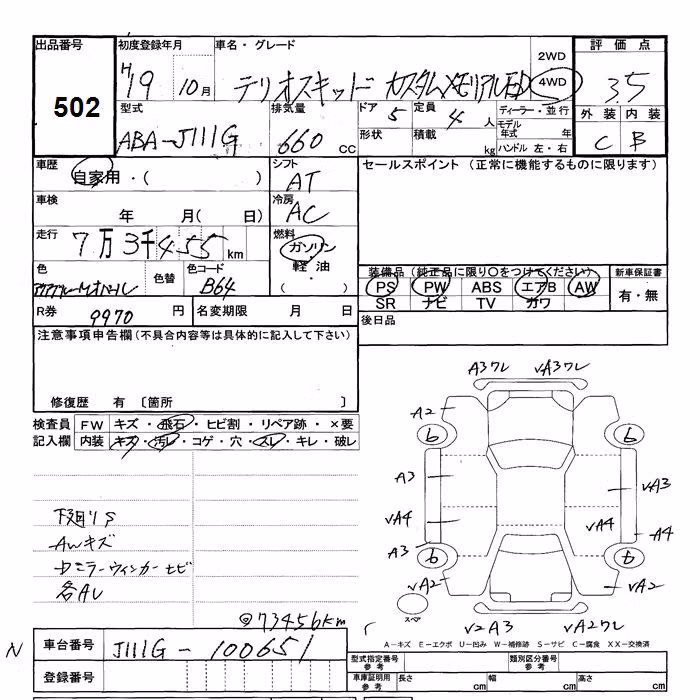 出品番号 初度登録年月 車名・グレード 2WD 評価点
502 H19 10月 テリオスキッド カスタムメモリアルED 4WD 3.5
型式 排気量 ドア 5 定員 4人 ディーラー・並行 外装 内装
ABA-J111G 660cc 形状 積載 kg モデル年式 年 ハンドル 左・右 C B
車歴 自家用・( ) シフト AT セールスポイント (正常に機能するものに限ります)
車検 年 月( 日) 冷房 AC
走行 7万3千455km 燃料 ガソリン
軽油
( )
色 色替 色コード B64
装備品(純正品に限り○をつけてください) 新車保証書
PS PW ABS エアB AW 有・無
SR ナビ TV カワ
R券 9970円 名変期限 月 日 後日品
注意事項申告欄(不具合内容等は具体的に記入して下さい)
修復歴 有 〔箇所 〕
検査員 FW キズ・飛石・ヒビ割・リペア跡・×要
記入欄 内装 キズ・汚レ・コゲ・穴・スレ・キレ・破レ
A3ワレ vA3ワレ
A2
6 6
A3 vA3
vA4 vA4 A4
A3
6 6
vA2 vA2
スペア
v2A3 vA2ワレ
下廻りS
AWキズ
Dミラーウィンカーナビ
各AU
@73456km
A-キズ E-エクボ U-凹み W-補修跡 S-サビ C-腐食 XX-交換済
N 車台番号 J111G-100651
登録番号
型式指定番号 参考 類別区分番号 参考
車庫証明用 参考 長さ cm 幅 cm 高さ cm